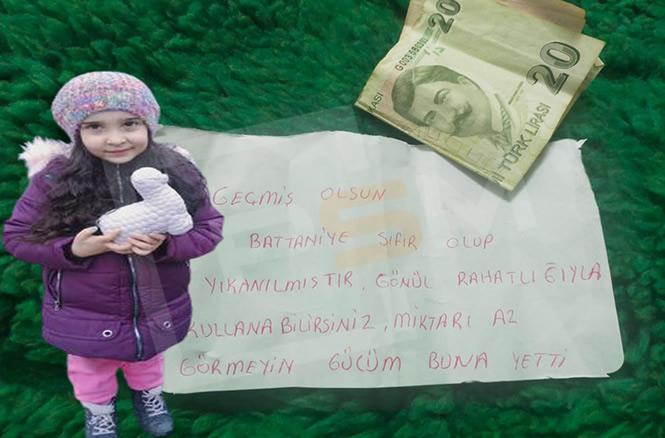 20
20
TÜRK LİRASI
GEÇMİŞ OLSUN
BATTANİYE SIFIR OLUP
YIKANILMIŞTIR, GÖNÜL RAHATLIĞIYLA
KULLANA BİLİRSİNİZ, MİKTARI AZ
GÖRMEYİN GÜCÜM BUNA YETTİ